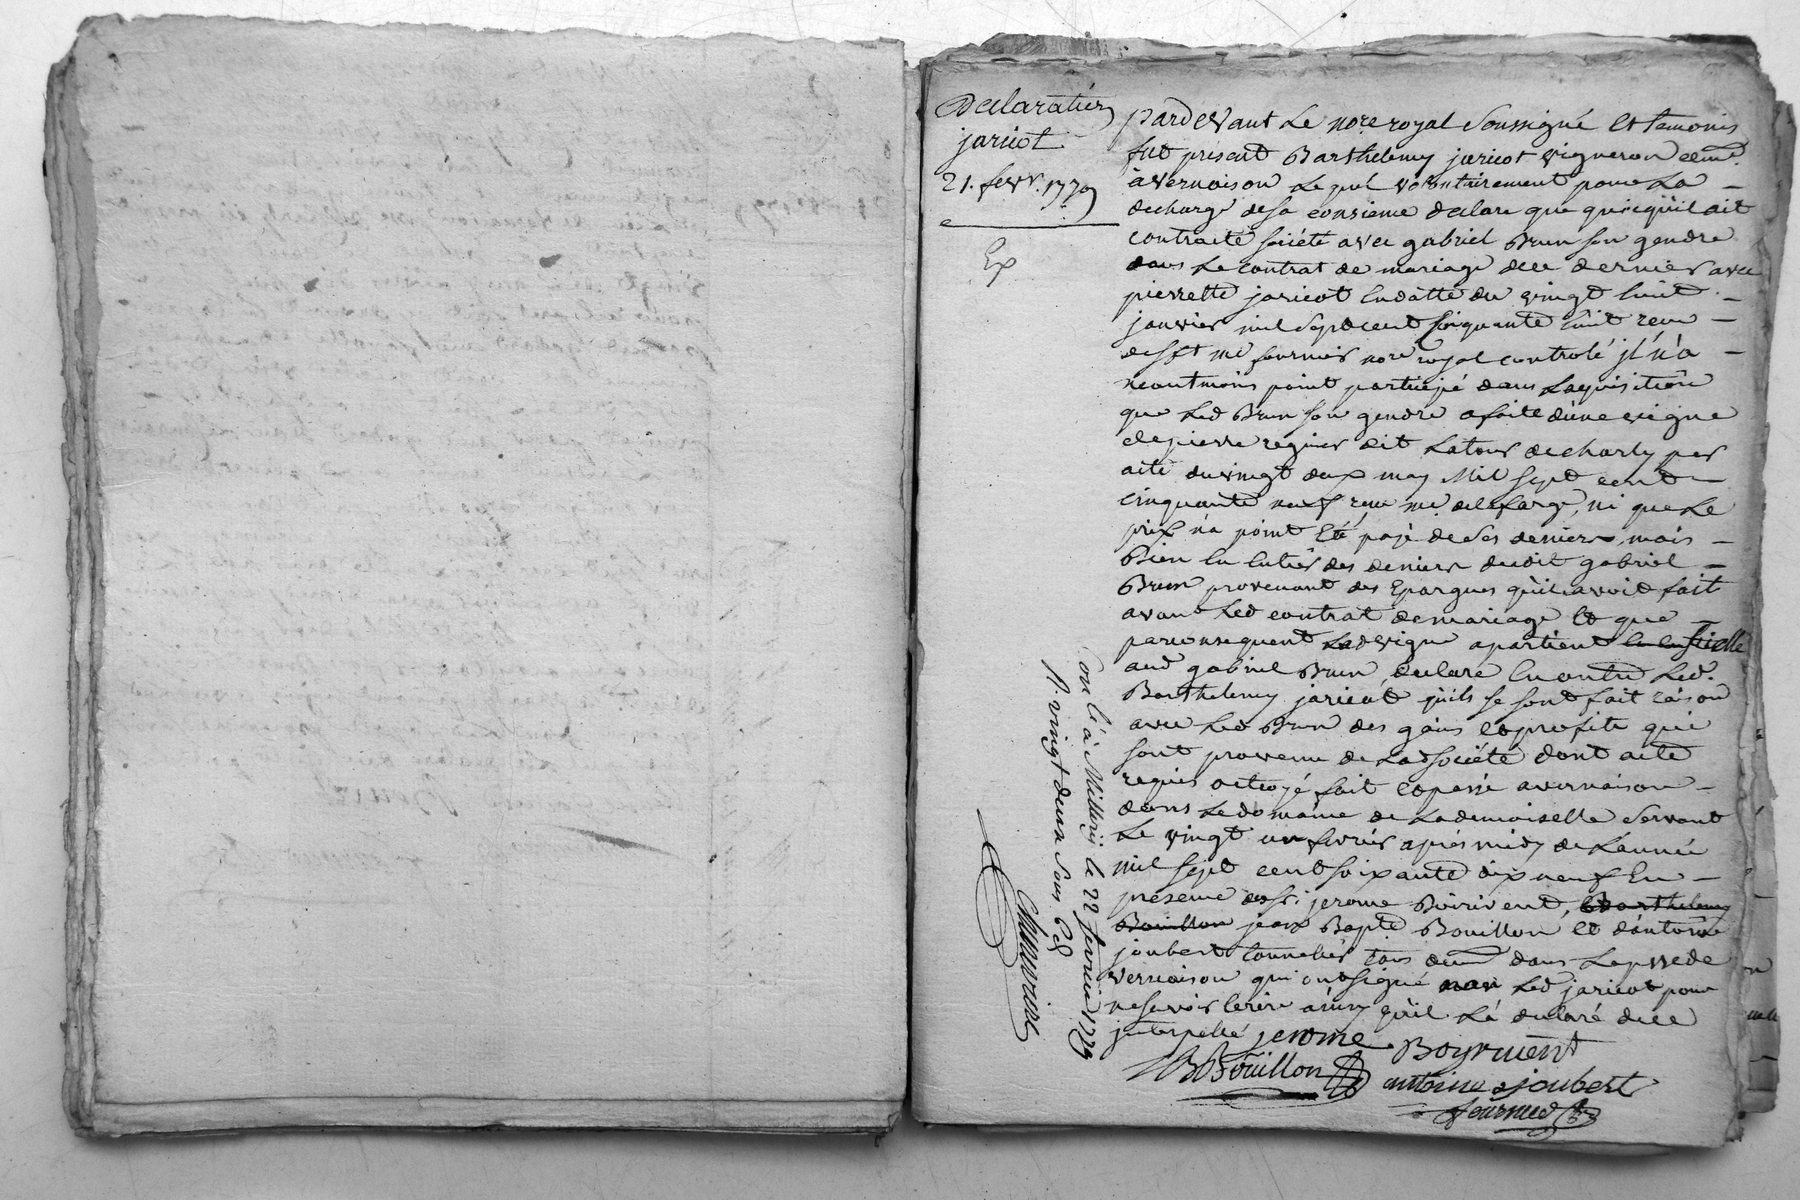 Declaration
jaricot
21. fevr. 1779
Ex
pardevant Le nore royal Soussigné Et temoins
fut présent Barthelemy jaricot vigneron demt.
à vernaison Lequel volontairement pour La
decharge de sa consience declare que quoiqu'il ait
contracté société avec gabriel Brun son gendre
dans Le contrat de mariage de ce dernier avec
pierrette jaricot En datte du vingt huit
janvier mil Sept cent cinquante huit recu
me fournier nore royal controlé jl n'a
neantmoins point participé dans Laquisition
que Led Brun son gendre a faite d'une vigne
de pierre regnier dit Latour de charly par
acte du vingt deux may Mil Sept cent
cinquante neuf recu me delafarge, ni que Le
prix n'a point Eté payé de Ses deniers mais
Bien En Entier des deniers dudit gabriel
Brun provenant des Epargnes qu'il avoit fait
avant Led contrat de mariage Et que
par consequent Lad vigne apartient
aud gabriel Brun, declare En outre Led.
Barthelemy jaricot qu'ils se sont fait raison
avec Led Brun des gains Et profits qui
sont provenu de Lad Société dont acte
requis octroyé fait Et passé a vernaison
dans Le domaine de La demoiselle Servant
Le vingt un fevrier après midy de L'année
mil Sept cent soixante dix neuf En
presence de jerome Boirivent, Barthelemy
Bouillon jean Bapte Bouillon et d'antoine
joubert tonnelier tous demt dans La psse de
vernaison qui ont signé non Led jaricot pour
ne savoir Ecrire ainsy qu'il L'a declaré de ce
jnterpellé jerome Boyrivent
JB Bouillon antoine joubert
fournier
Con lé à Millery le 22 fevrier 1779
R. vingt deux Sous 6 d